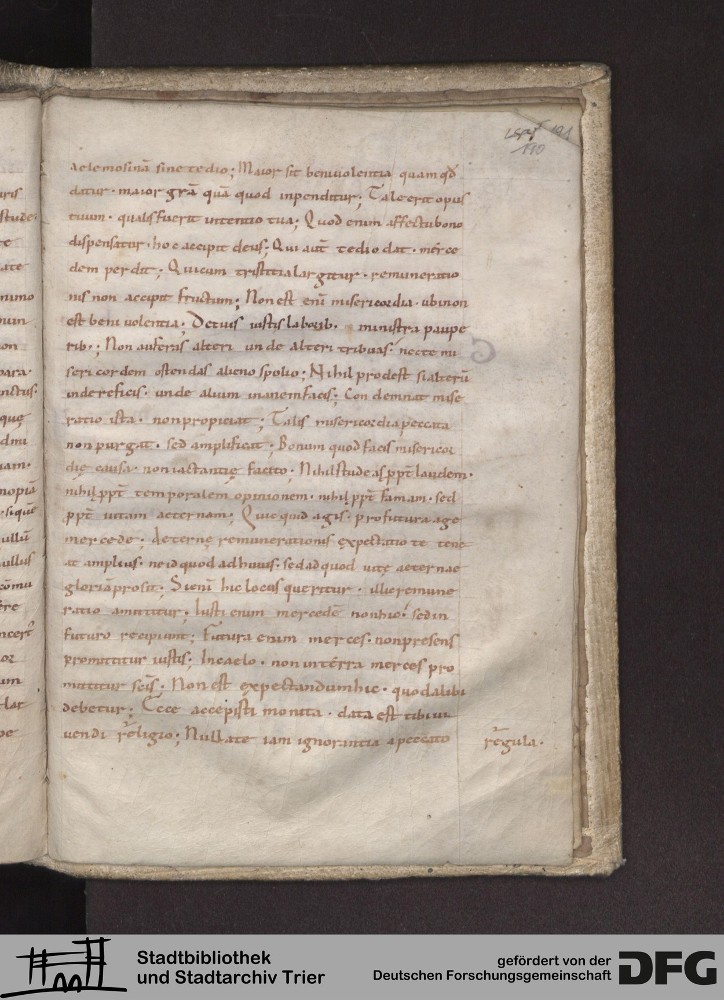 191
190
aelemosinā sine tedio; Maior sit benivolentia quam qđ
datur. maior grā quā quod inpenditur; Tale erit opus
tuum. qualis fuerit intentio tua; Quod enim affectu bono
dispensatur. hoc accipit deus; Qui aut̄ tedio dat. merce
dem perdit; Qui cum tristitia largitur. remuneratio
nis non accipit fructum; Non est eni misericordia. ubi non
est benivolentia; De tuis iustis laborib. ministra paupe
rib.; Non auferas alteri unde alteri tribuas. nec te mi
sericordem ostendas alieno spolio; Nihil prodest si alterū
inde reficis. unde alium inanem facis; Condemnat mise
ratio ista. non propiciat; Talis misericordia peccata
non purgat. sed amplificat; Bonum quod facis misericor
dię causa. non iactantię facito; Nihil studeas ꝓpt̄ laudem.
nihil ꝓpt̄ temporalem opinionem. nihil ꝓpt̄ famam. sed
ꝓpt̄ vitam aeternam; Quicquid agis. pro futura age
mercede; Aeternę remunerationis expectatio te tene
at amplius. ne id quod ad huius. sed ad quod vitę aeternae
gloriā prosit; Si enī hic locus queritur. illic remune
ratio amittitur; Iusti enim mercedē non hic. sed in
futuro recipiunt; Futura enim merces. non presens
promittitur iustis; In caelo. non in terra merces pro
mittitur sc̄is; Non est expectandum hic. quod alibi
debetur; Ecce accepisti monita. data est tibi vi
vendi religio; Nulla te iam ignorantia a peccato
regula.
Stadtbibliothek
und Stadtarchiv Trier
gefördert von der
Deutschen Forschungsgemeinschaft
DFG